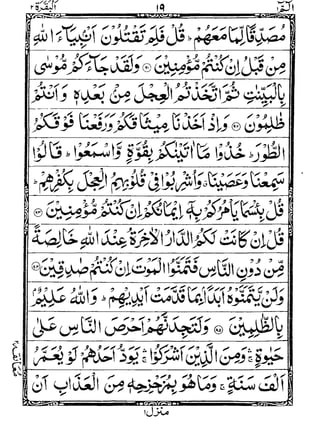 الٓمّٓ ١
١٩
البقرة ٢
مُصَدِّقًا لِّمَا مَعَهُمْ ؕ قُلْ فَلِمَ تَقْتُلُوْنَ اَنْۢبِيَآءَ اللّٰهِ
مِنْ قَبْلُ اِنْ كُنْتُمْ مُّؤْمِنِيْنَ ۝۹۱ وَلَقَدْ جَآءَكُمْ مُّوْسٰى
بِالْبَيِّنٰتِ ثُمَّ اتَّخَذْتُمُ الْعِجْلَ مِنْۢ بَعْدِهٖ وَاَنْتُمْ
ظٰلِمُوْنَ ۝۹۲ وَاِذْ اَخَذْنَا مِيْثَاقَكُمْ وَرَفَعْنَا فَوْقَكُمُ
الطُّوْرَ ؕ خُذُوْا مَآ اٰتَيْنٰكُمْ بِقُوَّةٍ وَّاسْمَعُوْا ؕ قَالُوْا
سَمِعْنَا وَعَصَيْنَا ۗ وَاُشْرِبُوْا فِيْ قُلُوْبِهِمُ الْعِجْلَ بِكُفْرِهِمْ ؕ
قُلْ بِئْسَمَا يَاْمُرُكُمْ بِهٖٓ اِيْمَانُكُمْ اِنْ كُنْتُمْ مُّؤْمِنِيْنَ ۝۹۳
قُلْ اِنْ كَانَتْ لَكُمُ الدَّارُ الْاٰخِرَةُ عِنْدَ اللّٰهِ خَالِصَةً
مِّنْ دُوْنِ النَّاسِ فَتَمَنَّوُا الْمَوْتَ اِنْ كُنْتُمْ صٰدِقِيْنَ ۝۹۴
وَلَنْ يَّتَمَنَّوْهُ اَبَدًۢا بِمَا قَدَّمَتْ اَيْدِيْهِمْ ؕ وَاللّٰهُ عَلِيْمٌۢ
بِالظّٰلِمِيْنَ ۝۹۵ وَلَتَجِدَنَّهُمْ اَحْرَصَ النَّاسِ عَلٰى
حَيٰوةٍ ۚ وَمِنَ الَّذِيْنَ اَشْرَكُوْا ۚ يَوَدُّ اَحَدُهُمْ لَوْ يُعَمَّرُ
اَلْفَ سَنَةٍ ۚ وَمَا هُوَ بِمُزَحْزِحِهٖ مِنَ الْعَذَابِ اَنْ
منزل ١